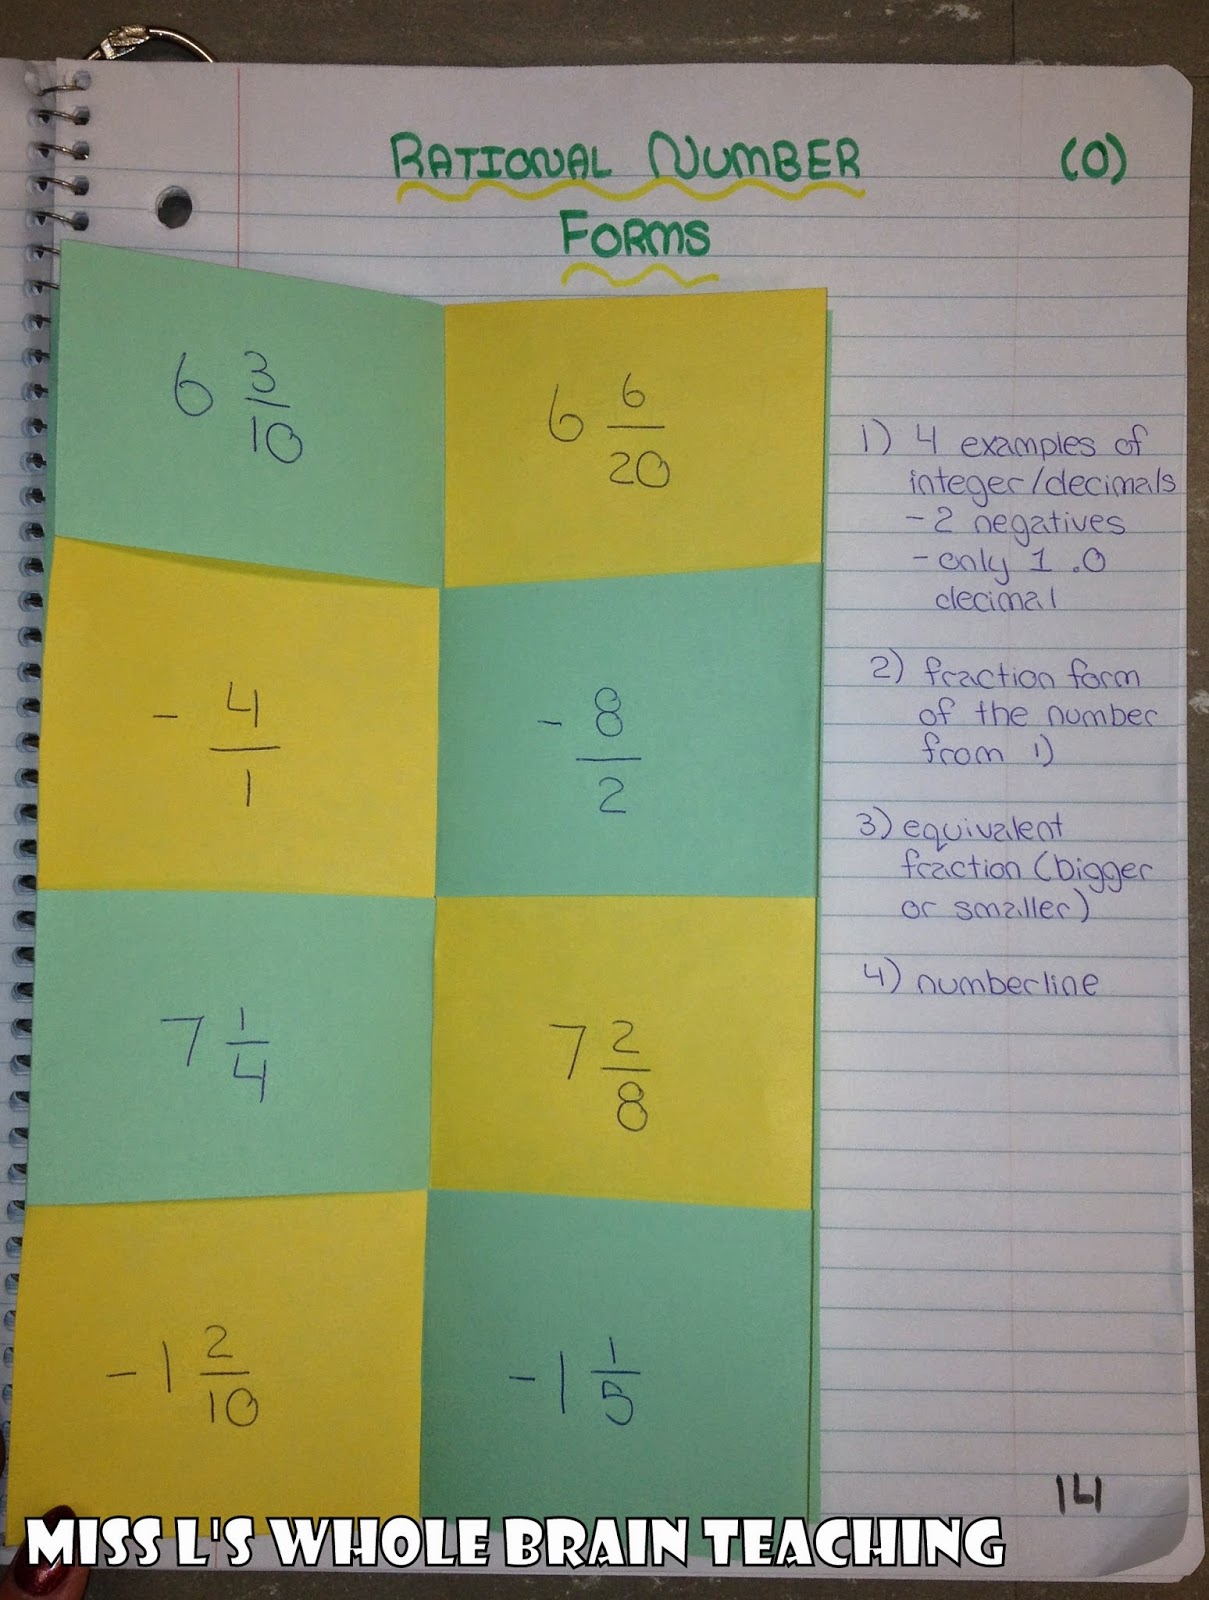 RATIONAL NUMBER (O)
FORMS
6 3/10
6 6/20
- 4/1
- 8/2
7 1/4
7 2/8
-1 2/10
-1 1/5
1) 4 examples of
integer/decimals
- 2 negatives
- only 1 .0
decimal
2) fraction form
of the number
from 1)
3) equivalent
fraction (bigger
or smaller)
4) numberline
14
MISS L'S WHOLE BRAIN TEACHING